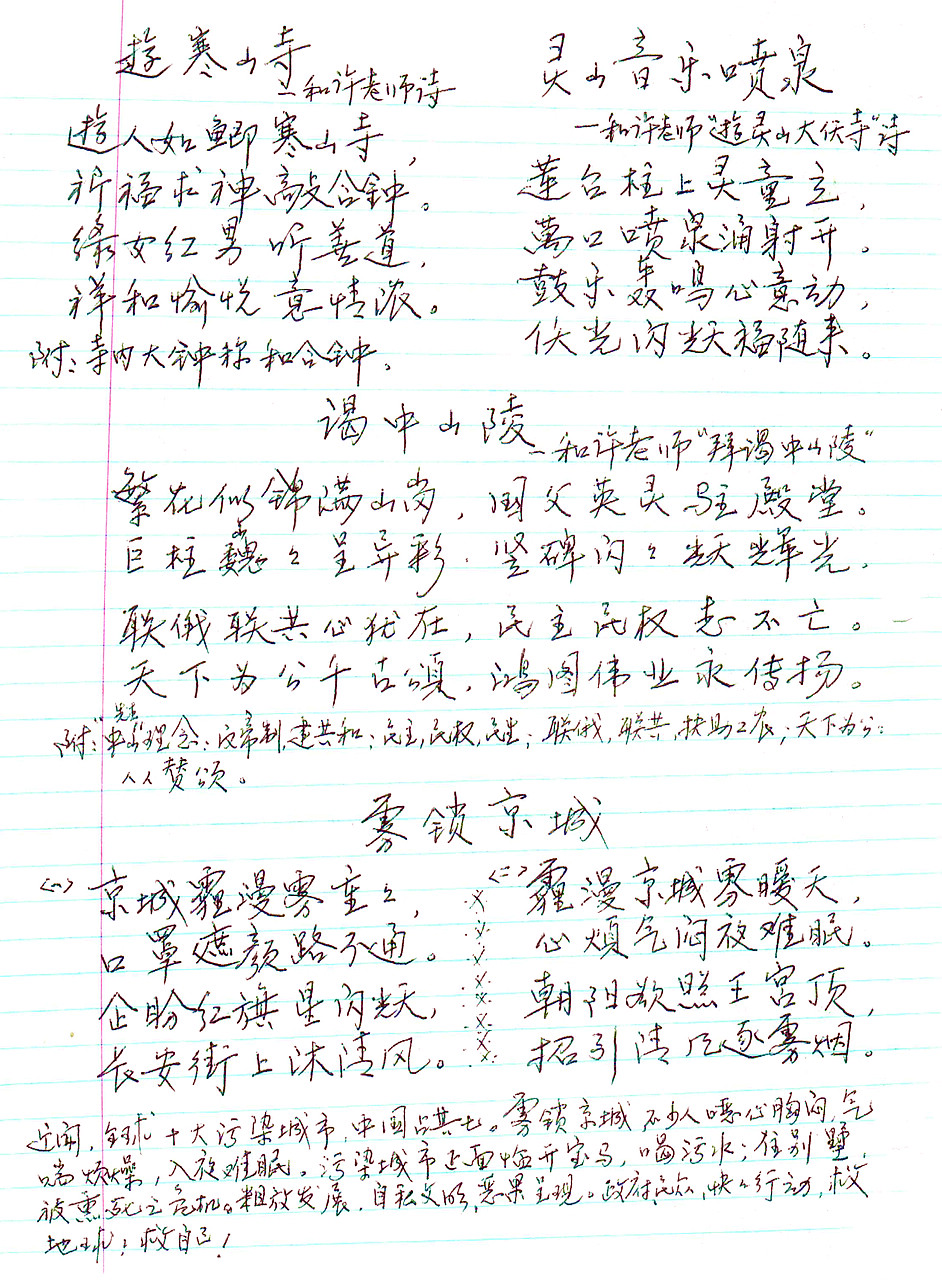 遊寒山寺
—和许老师诗
遊人如鲫寒山寺，
祈福求神敲合钟。
绿女红男听善道，
祥和愉悦意情浓。
附：寺内大钟称和合钟。
灵山音乐喷泉
—和许老师“遊灵山大佛寺”诗
莲台柱上灵童立，
萬口喷泉涌射开。
鼓乐轰鸣心意动，
佛光闪耀福随来。
谒中山陵
—和许老师“拜谒中山陵”
繁花似锦满山岗，国父英灵驻殿堂。
巨柱巍々呈异彩，竖碑闪々耀辉光。
联俄联共心犹在，民主民权志不亡。
天下为公千古颂，鸿图伟业永传扬。
附：中山先生理念：反帝制，建共和；民主，民权，民生；联俄，联共，扶助工农；天下为公：
人人赞颂。
雾锁京城
<一>京城霾漫雾重々，
口罩遮颜路不通。
企盼红旗星闪耀，
长安街上沐清风。
<二>霾漫京城雾暧天，
心烦气闷夜难眠。
朝阳欲照王宫顶，
招引清风逐雾烟。
近闻，全球十大污染城市，中国占其七。雾锁京城不少人噁心胸闷，气
喘烦燥，入夜难眠。污染城市正面临开宝马，喝污水；住别墅，
被熏死之危机。粗放发展，自私文明，恶果呈现。政府民众，快々行动，救
地球；救自己！